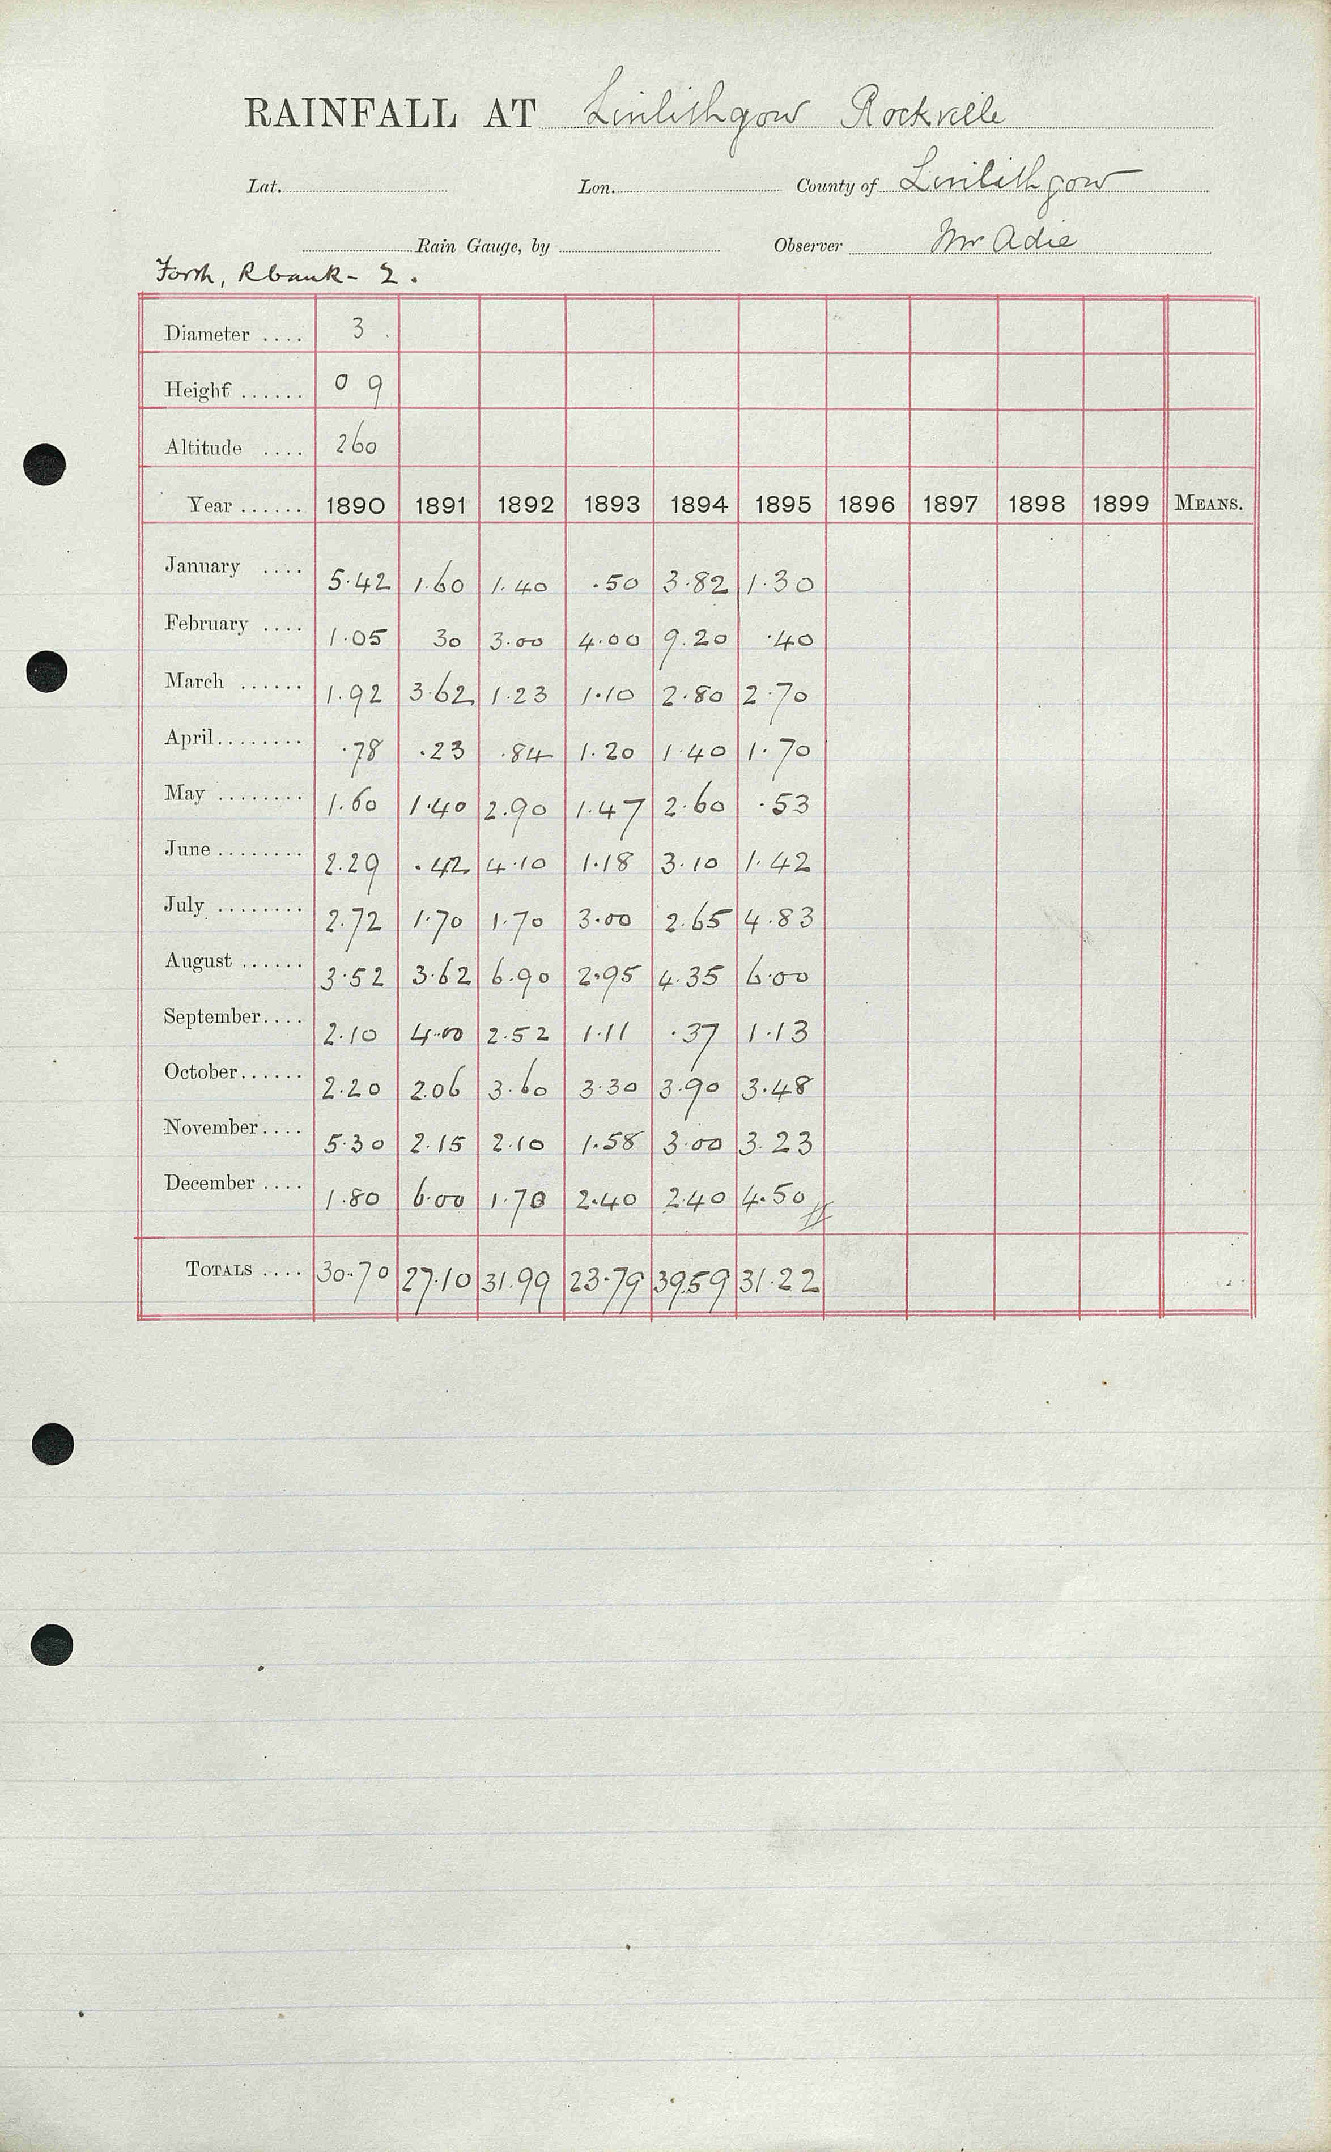 RAINFALL AT Linlithgow Rockville
Lat. Lon. County of Linlithgow
Rain Gauge, by Observer Mr Adie
Forth, R bank - 2.
Diameter .... 3
Height ...... 0 9
Altitude .... 260
Year ...... 1890 1891 1892 1893 1894 1895 1896 1897 1898 1899 MEANS.
January .... 5.42 1.60 1.40 .50 3.82 1.30
February .... 1.05 30 3.00 4.00 9.20 .40
March ...... 1.92 3.62 1.23 1.10 2.80 2.70
April........ .78 .23 .84 1.20 1.40 1.70
May ........ 1.60 1.40 2.90 1.47 2.60 .53
June ........ 2.29 .42 4.10 1.18 3.10 1.42
July ........ 2.72 1.70 1.70 3.00 2.65 4.83
August ...... 3.52 3.62 6.90 2.95 4.35 6.00
September.... 2.10 4.00 2.52 1.11 .37 1.13
October...... 2.20 2.06 3.60 3.30 3.90 3.48
November.... 5.30 2.15 2.10 1.58 3.00 3.23
December .... 1.80 6.00 1.70 2.40 2.40 4.50
TOTALS .... 30.70 27.10 31.99 23.79 39.59 31.22